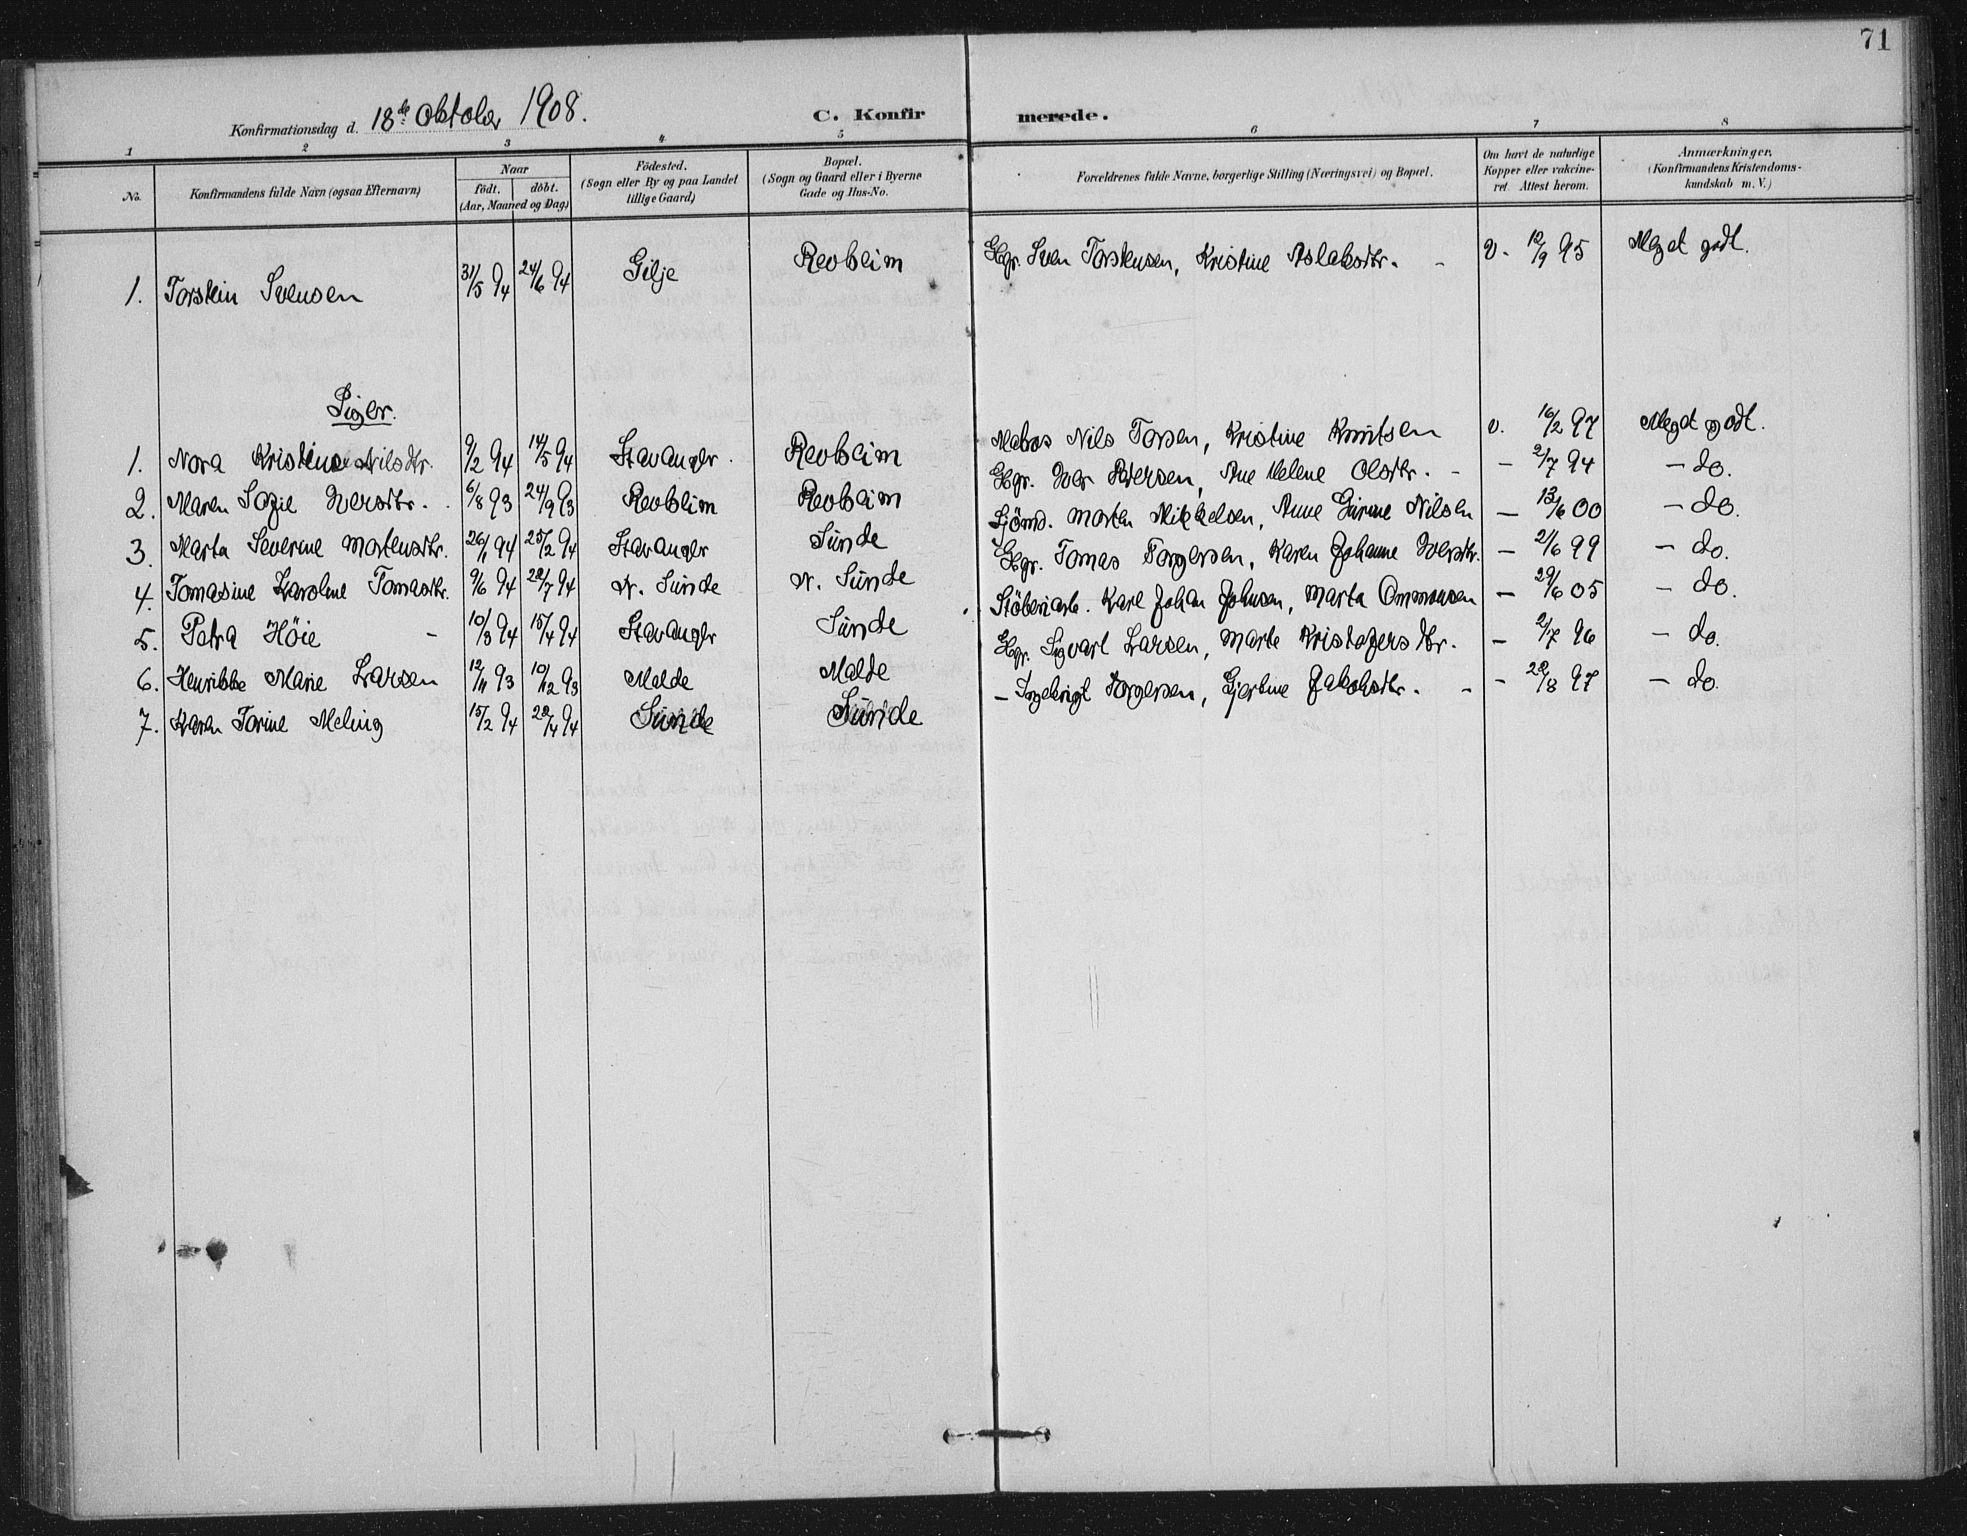 71
Konfirmationsdag d. 18de Oktober 1908. C. Konfirmerede.
1 2 3 4 5 6 7 8
No. Konfirmandens fulde Navn (ogsaa Efternavn) Naar født. døbt. (Aar, Maaned og Dag) Födested. (Sogn eller By og paa Landet tillige Gaard) Bopæl. (Sogn og Gaard eller i Byerne Gade og Hus-No. Forældrenes fulde Navne, borgerlige Stilling (Næringsvei) og Bopæl. Om havt de naturlige Kopper eller vakcineret. Attest herom. Anmærkninger. (Konfirmandens Kristendomskundskab m. V.)
1. Torstein Svensen 31/5 94 24/6 94 Gilje Revheim Gbr. Sven Torstensen, Kristine Aslaksdtr. - v. 12/9 95 Meget godt.
Piger.
1. Nora Kristine Nilsdtr. 9/2 94 14/5 94 Stavanger. Revheim Nils Torsen, Kristine Knutsen v. 16/2 97 Meget godt.
2. Maren Sofie Iversdtr. 6/8 93 24/9 93 Revheim Revheim Gbr. Iver Petersen, Ane Helene Olsdtr. - - 2/7 94 - do.
3. Marta Severine Mortensdtr. 26/1 94 25/2 94 Stavanger Sunde Sjömd. Morten Mikkelsen, Anne Gurine Nilsen - 13/6 00 - do.
4. Tomasine Karoline Tomasdtr. 9/6 94 22/7 94 N. Sunde N. Sunde Gbr. Tomas Torgersen, Karen Johanne Iversdtr. - 2/6 99 - do.
5. Petra Höie - 10/3 94 15/4 94 Stavanger Sunde Stöberiarb. Karl Johan Johnsen, Marta Ommonsen - 29/6 05 - do.
6. Henrikke Marie Larsen 12/11 93 10/12 93 Malde Malde Gbr. Sigvart Larsen, Marte Kristofersdtr. - 2/7 96 - do.
7. Karen Torine Meling 15/2 94 22/4 94 Sunde Sunde - Ingebrigt Torgersen, Gjertine Jakobsdtr. - - 22/8 97 - do.